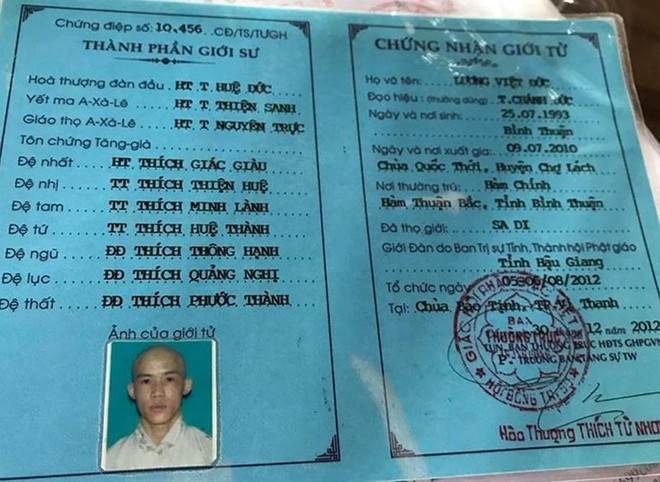 Chứng điệp số: 10,456..CĐ/TS/TƯGH
THÀNH PHẦN GIỚI SƯ
Hoà thượng đàn đầu: HT T. HUỆ ĐỨC
Yết ma A-Xà-Lê: HT T THIỆN SANH
Giáo thọ A-Xà-Lê: HT T NGUYÊN TRỰC
Tôn chứng Tăng-già:
Đệ nhất HT THÍCH GIÁC GIÀU
Đệ nhị TT THÍCH THIỆN HUỆ
Đệ tam TT THÍCH MINH LÀNH
Đệ tứ TT THÍCH HUỆ THÀNH
Đệ ngũ ĐĐ THÍCH THÔNG HẠNH
Đệ lục ĐĐ THÍCH QUẢNG NGHỊ
Đệ thất ĐĐ THÍCH PHƯỚC THÀNH
Ảnh của giới tử
CHỨNG NHẬN GIỚI TỬ
Họ và tên: LƯƠNG VIỆT ĐỨC
Đạo hiệu: (thường dùng) T.CHÁNH ĐỨC
Ngày và nơi sinh: 25.07.1993
Bình Thuận
Ngày và nơi xuất gia: 09.07.2010
Chùa Quốc Thới, Huyện Chợ Lách
Nơi thường trú: Hàm Chính
Hàm Thuận Bắc, Tỉnh Bình Thuận
Đã thọ giới: SA DI
Giới Đàn do Ban Trị sự Tỉnh, Thành hội Phật giáo
Tỉnh Hậu Giang
Tổ chức ngày 05-06/08/2012
Tại: Chùa Bảo Tịnh, TP.Vị Thanh
30 12 năm 2012
TUN. BAN THƯỜNG TRỰC HĐTS GHPGVN
P. TRƯỞNG BAN TĂNG SỰ TW
BAN
THƯỜNG TRỰC
HỘI ĐỒNG TRỊ SỰ
Hòa Thượng THÍCH TỪ NHƠN